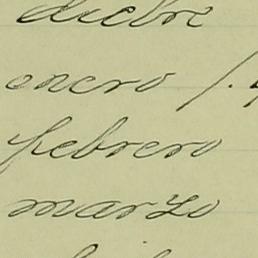 dicbre
enero 1.
febrero
marzo